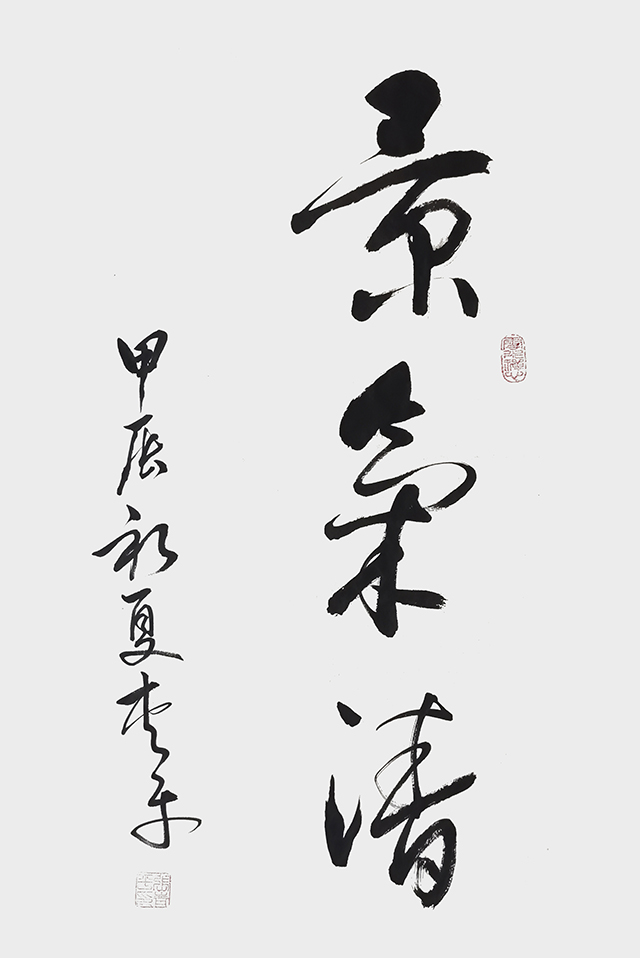 景氣清
甲辰初夏